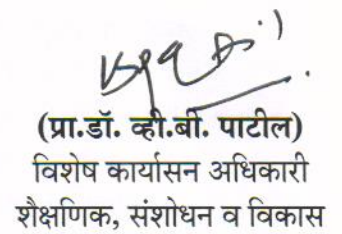 (प्रा.डॉ. व्ही.बी. पाटील)
विशेष कार्यासन अधिकारी
शैक्षणिक, संशोधन व विकास